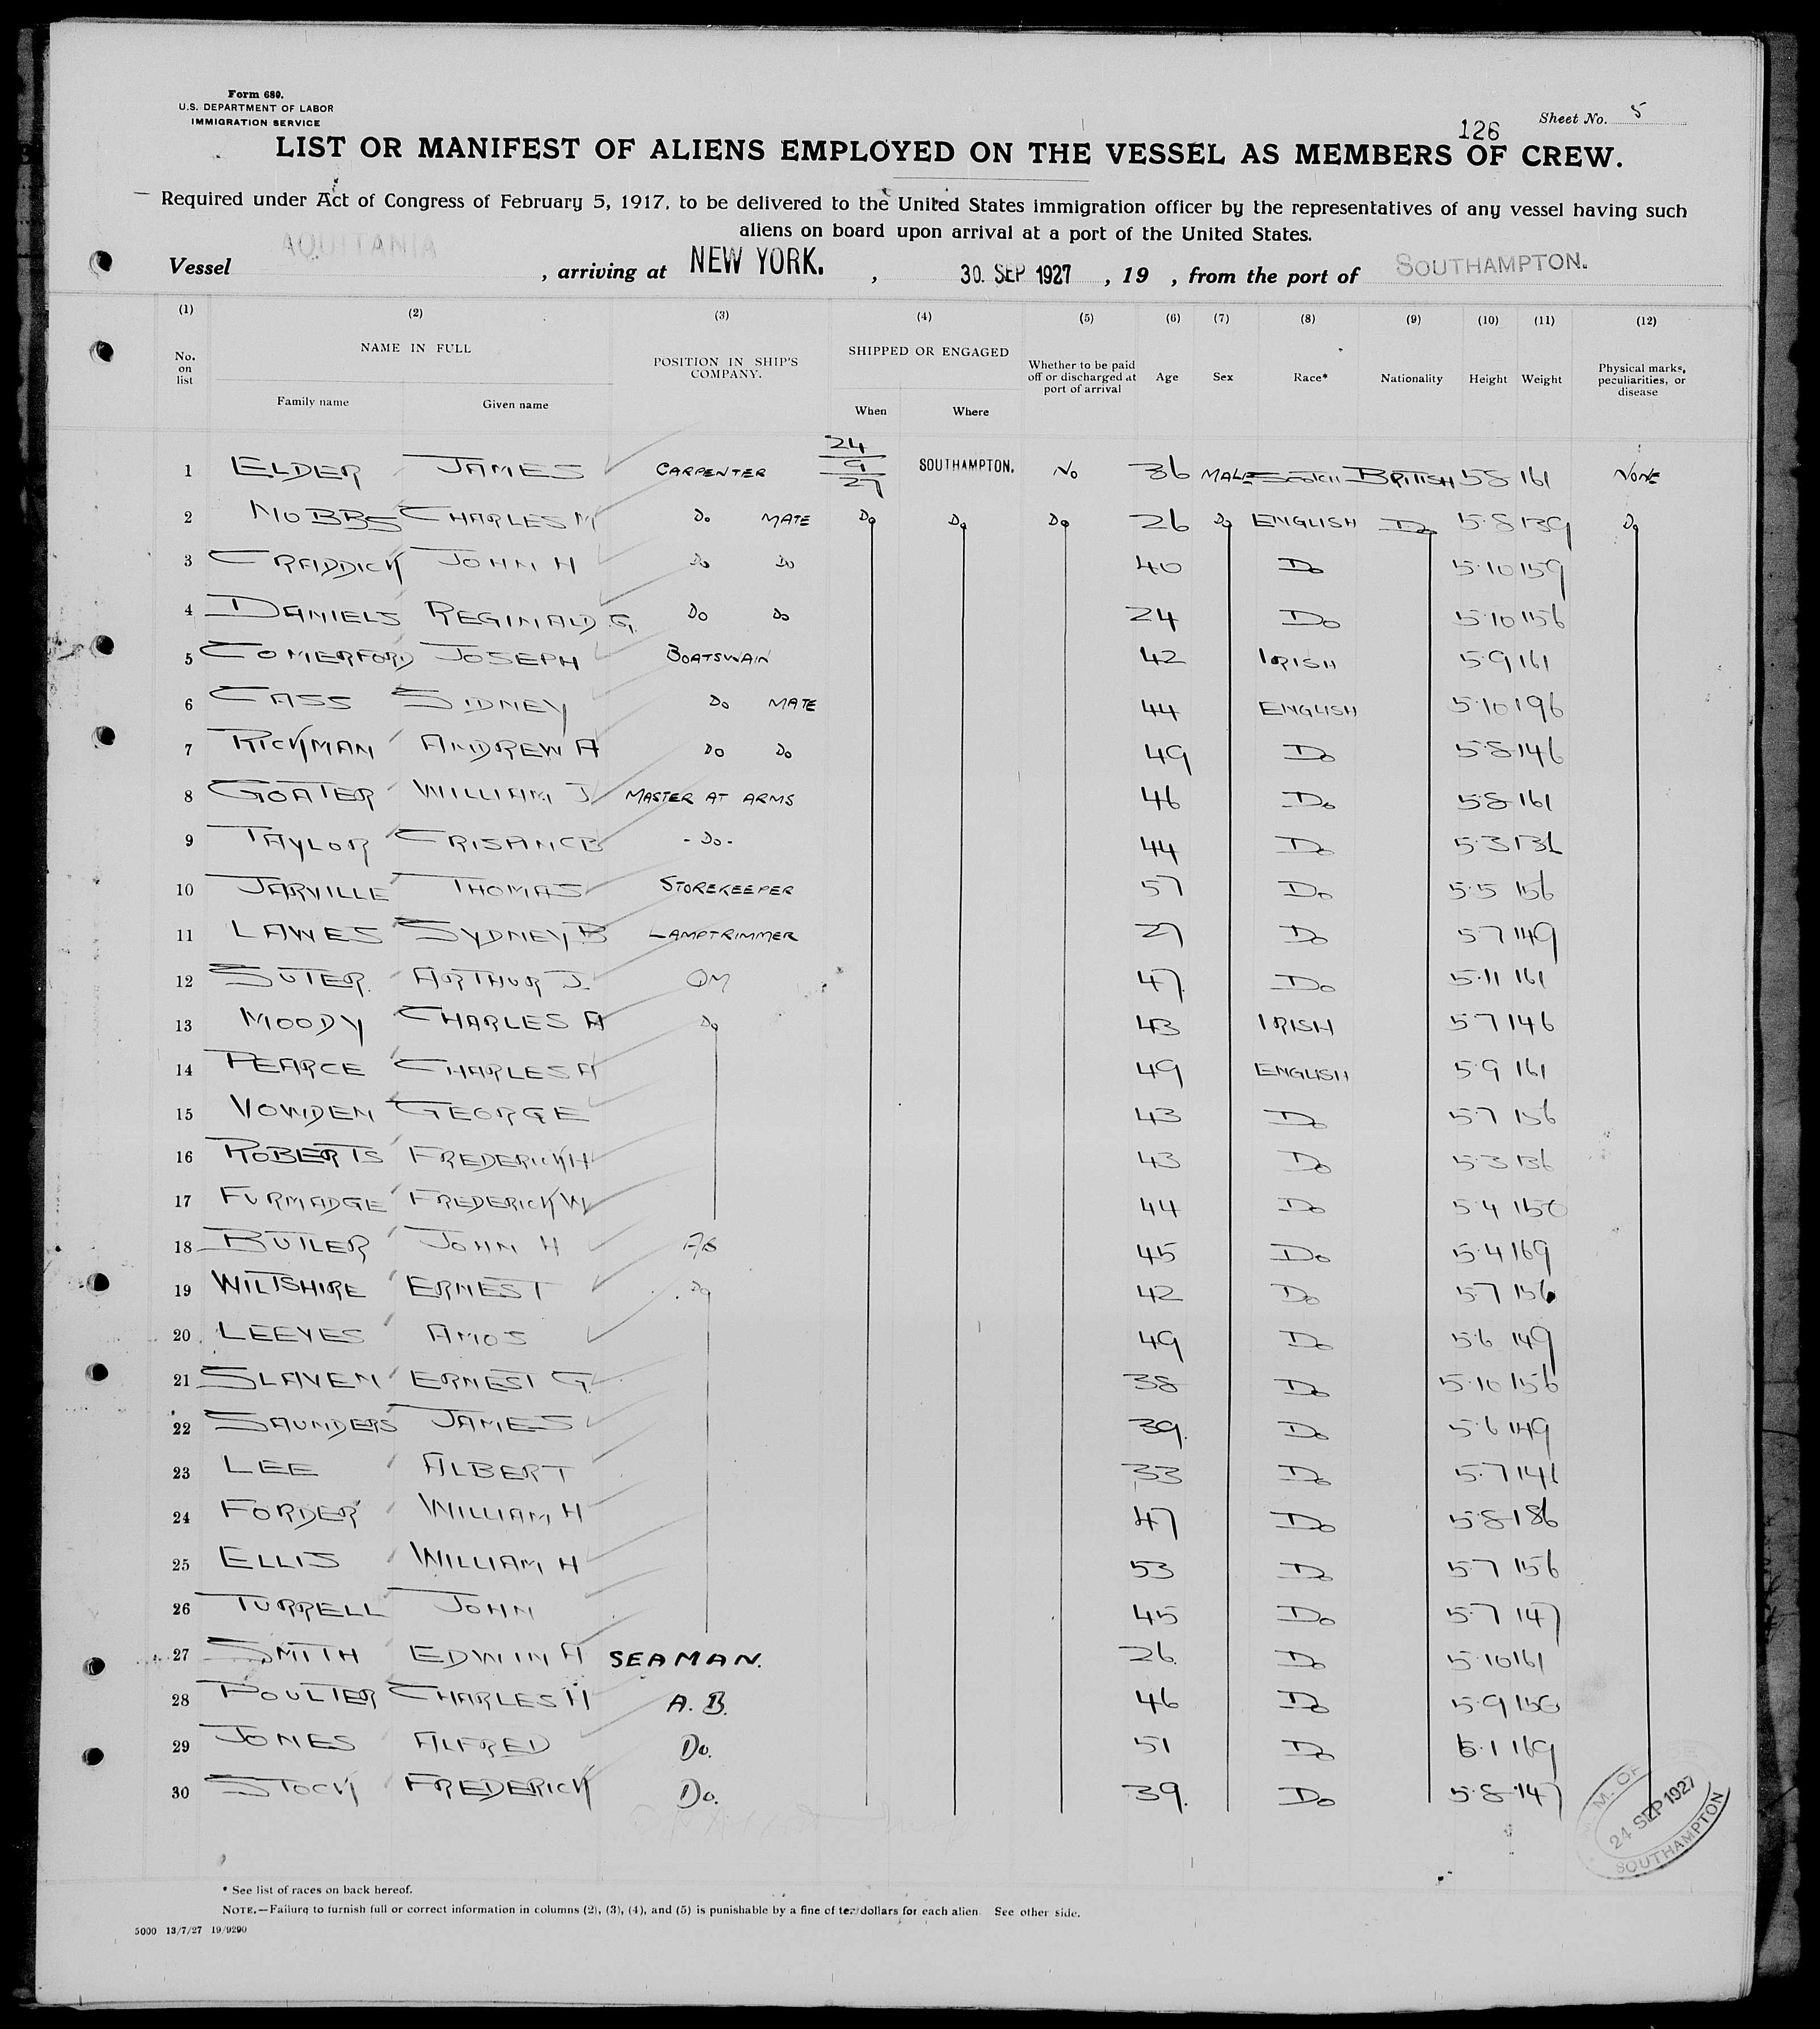 Form 680.
U.S. DEPARTMENT OF LABOR
IMMIGRATION SERVICE
Sheet No. 5
126
LIST OR MANIFEST OF ALIENS EMPLOYED ON THE VESSEL AS MEMBERS OF CREW.
Required under Act of Congress of February 5, 1917, to be delivered to the United States immigration officer by the representatives of any vessel having such
aliens on board upon arrival at a port of the United States.
Vessel AQUITANIA, arriving at NEW YORK., 30. SEP 1927, 19 , from the port of SOUTHAMPTON.
(1) (2) (3) (4) (5) (6) (7) (8) (9) (10) (11) (12)
No. on list NAME IN FULL POSITION IN SHIP'S COMPANY. SHIPPED OR ENGAGED Whether to be paid off or discharged at port of arrival Age Sex Race* Nationality Height Weight Physical marks, peculiarities, or disease
Family name Given name When Where
1 ELDER JAMES CARPENTER 24/9/27 SOUTHAMPTON. No 36 MALE SCOTCH BRITISH 5 8 161 NONE
2 MOBBS CHARLES M Do MATE Do Do Do 26 Do ENGLISH Do 5·8 139 Do
3 CRADDICK JOHN H Do Do 40 Do 5·10 159
4 DANIELS REGINALD G. Do Do 24 Do 5·10 156
5 COMERFORD JOSEPH BOATSWAIN 42 IRISH 5·9 161
6 CASS SIDNEY Do MATE 44 ENGLISH 5·10 196
7 RICKMAN ANDREW A Do Do 49 Do 5·8 146
8 GOATER WILLIAM J MASTER AT ARMS 46 Do 5·8 161
9 TAYLOR - Do - 44 Do 5·3 136
10 JARVILLE THOMAS STOREKEEPER 57 Do 5·5 156
11 LAWES SYDNEY B LAMPTRIMMER 27 Do 5 7 149
12 SUTER. ARTHUR J. QM 47 Do 5·11 161
13 MOODY CHARLES A Do 43 IRISH 5 7 146
14 PEARCE CHARLES A 49 ENGLISH 5·9 161
15 VOWDEN GEORGE 43 Do 5·7 156
16 ROBERTS FREDERICK H 43 Do 5·3 136
17 FURMADGE FREDERICK W 44 Do 5·4 150
18 BUTLER JOHN H AB 45 Do 5·4 169
19 WILTSHIRE ERNEST Do 42 Do 5·7 156
20 LEEVES AMOS 49 Do 5·6 149
21 SLAVEN ERNEST G. 38 Do 5·10 156
22 SAUNDERS JAMES 39. Do 5·6 149
23 LEE ALBERT 33 Do 5·7 146
24 FORDER WILLIAM H 47 Do 5·8 186
25 ELLIS WILLIAM H 53 Do 5·7 156
26 TURRELL JOHN 45 Do 5·7 147
27 SMITH EDWIN A SEAMAN. 26. Do 5·10 161
28 POULTER CHARLES H A. B. 46 Do 5·9 150
29 JONES ALFRED Do. 51 Do 6·1 169
30 STOCK FREDERICK Do. 39. Do 5·8 147
M. OF
24 SEP 1927
SOUTHAMPTON
* See list of races on back hereof.
NOTE.—Failure to furnish full or correct information in columns (2), (3), (4), and (5) is punishable by a fine of ten dollars for each alien. See other side.
5000 13/7/27 19/9290